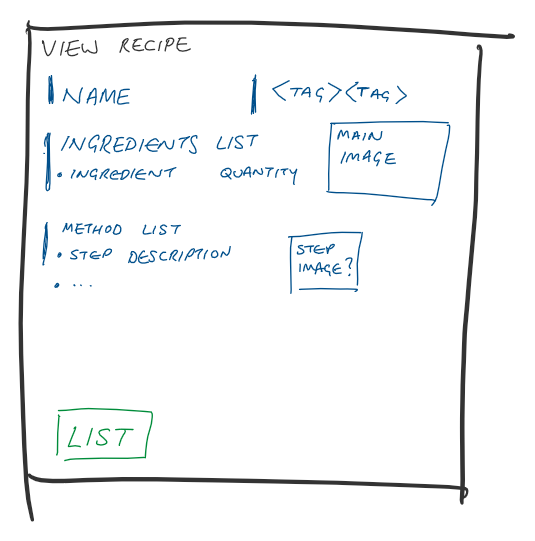 VIEW RECIPE
NAME
<TAG><TAG>
INGREDIENTS LIST
• INGREDIENT QUANTITY
MAIN
IMAGE
METHOD LIST
• STEP DESCRIPTION
• ...
STEP
IMAGE?
LIST